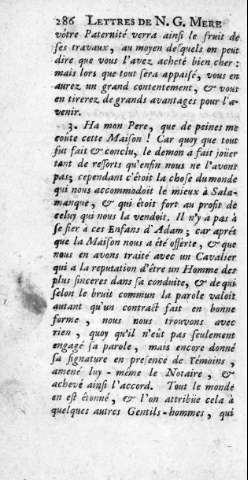 286 LETTRES DE N. G. MERE
vôtre Paternité verra ainsi le fruit de
ses travaux, au moyen desquels on peut
dire que vous l'avez acheté bien cher:
mais lors que tout sera appaisé, vous en
aurez un grand contentement, & vous
en tirerez de grands avantages pour l'a-
venir.
3. Ha mon Pere, que de peines me
coute cette Maison ! Car quoy que tout
fut fait & conclu, le demon a fait jouer
tant de ressorts qu'enfin nous ne l'avons
pas; cependant c'étoit la chose du monde
qui nous accommodoit le mieux à Sala-
manque, & qui étoit fort au profit de
celuy qui nous la vendoit. Il n'y a pas à
se fier à ces Enfans d'Adam; car aprés
que la Maison nous a été offerte, & que
nous en avons traité avec un Cavalier
qui a la reputation d'être un Homme des
plus sinceres dans sa conduite, & de qui
selon le bruit commun la parole valoit
autant qu'un contract fait en bonne
forme, nous nous trouvons avec
rien, quoy qu'il n'eût pas seulement
engagé sa parole, mais encore donné
sa signature en presence de Témoins,
amené luy-même le Notaire, &
achevé ainsi l'accord. Tout le monde
en est étonné, & l'on attribüe cela à
quelques autres Gentils-hommes, qui